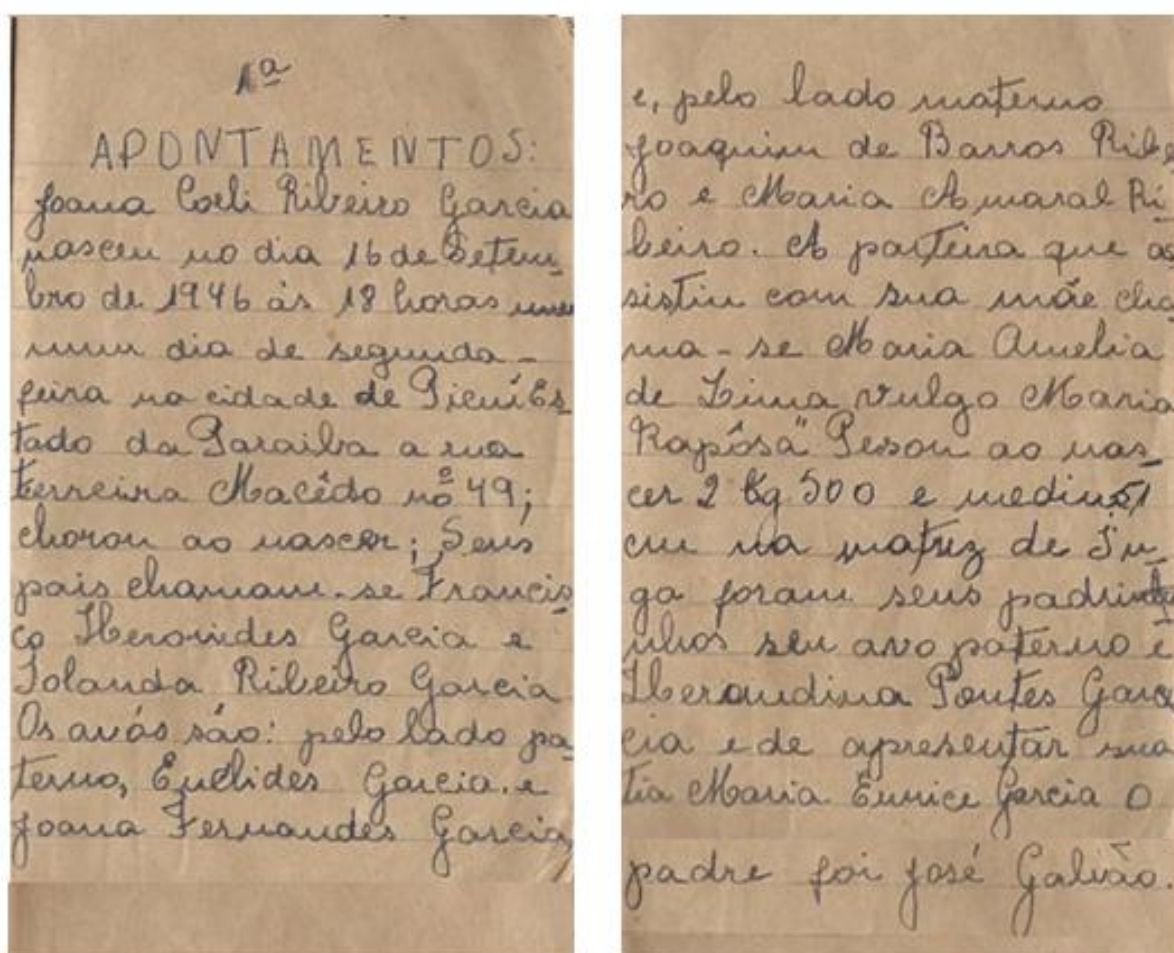 1ª
APONTAMENTOS:
Joana Coeli Ribeiro Garcia
nasceu no dia 16 de Setem_
bro de 1946 às 18 horas
num dia de segunda_
feira na cidade de Picuí Es_
tado da Paraiba a rua
Ferreira Macêdo nº 49;
chorou ao nascer; Seus
pais chamam-se Francis_
co Heronides Garcia e
Iolanda Ribeiro Garcia
Os avós são: pelo lado pa_
terno, Euclides Garcia. e
Joana Fernandes Garcia,
e, pelo lado materno
Joaquim de Barros Ribe
ro e Maria Amaral Ri_
beiro. A parteira que as
sistiu com sua mãe cha_
ma-se Maria Amelia
de Lima vulgo Maria
Rapôsa" Pesou ao nas_
cer 2 Kg 500 e mediu 51
cm na matriz de
ga foram seus
nhos seu avo paterno e
Herondina Pontes Gar
cia e de apresentar sua
tia Maria Eunice Garcia O
padre foi José Galvão.